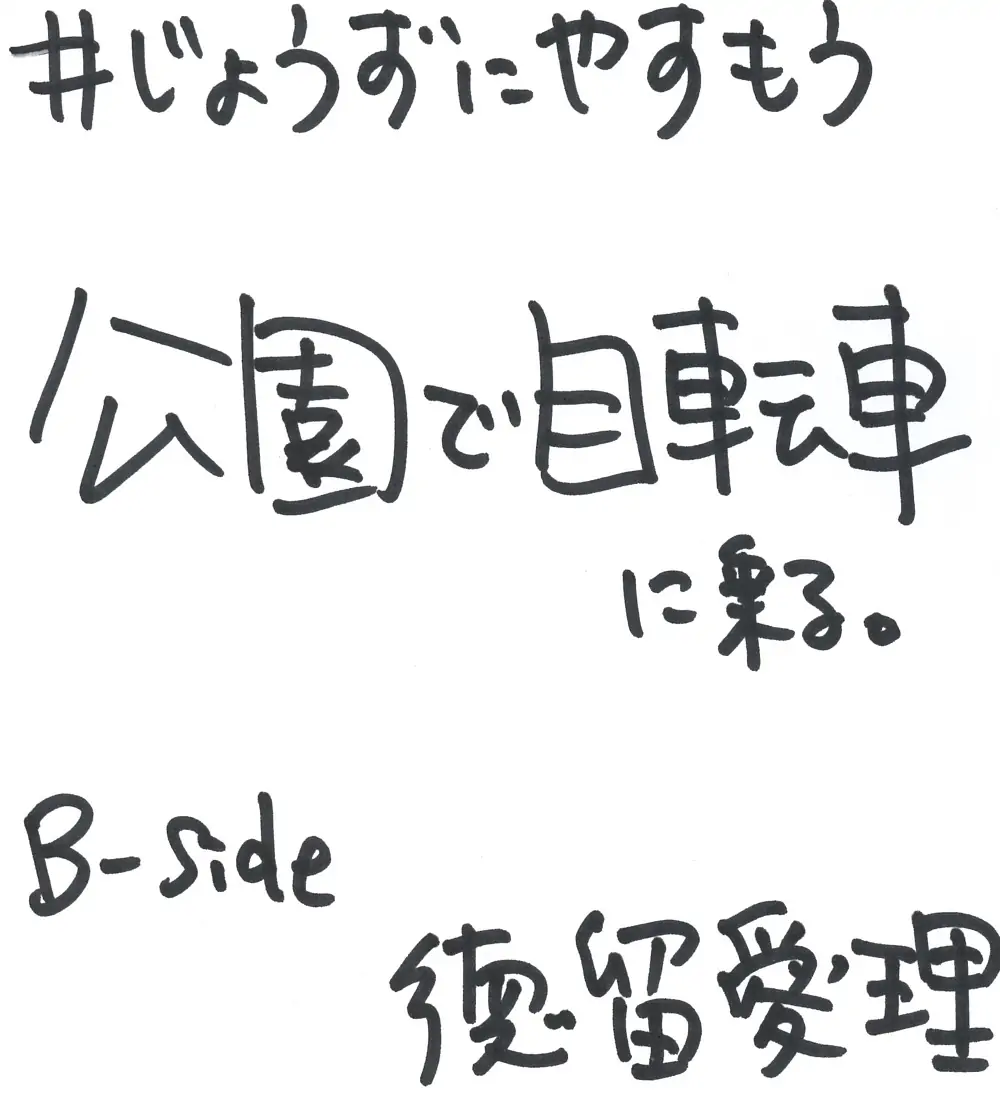 #じょうずにやすもう
公園で自転車
に乗る。
B-side
徳留愛理